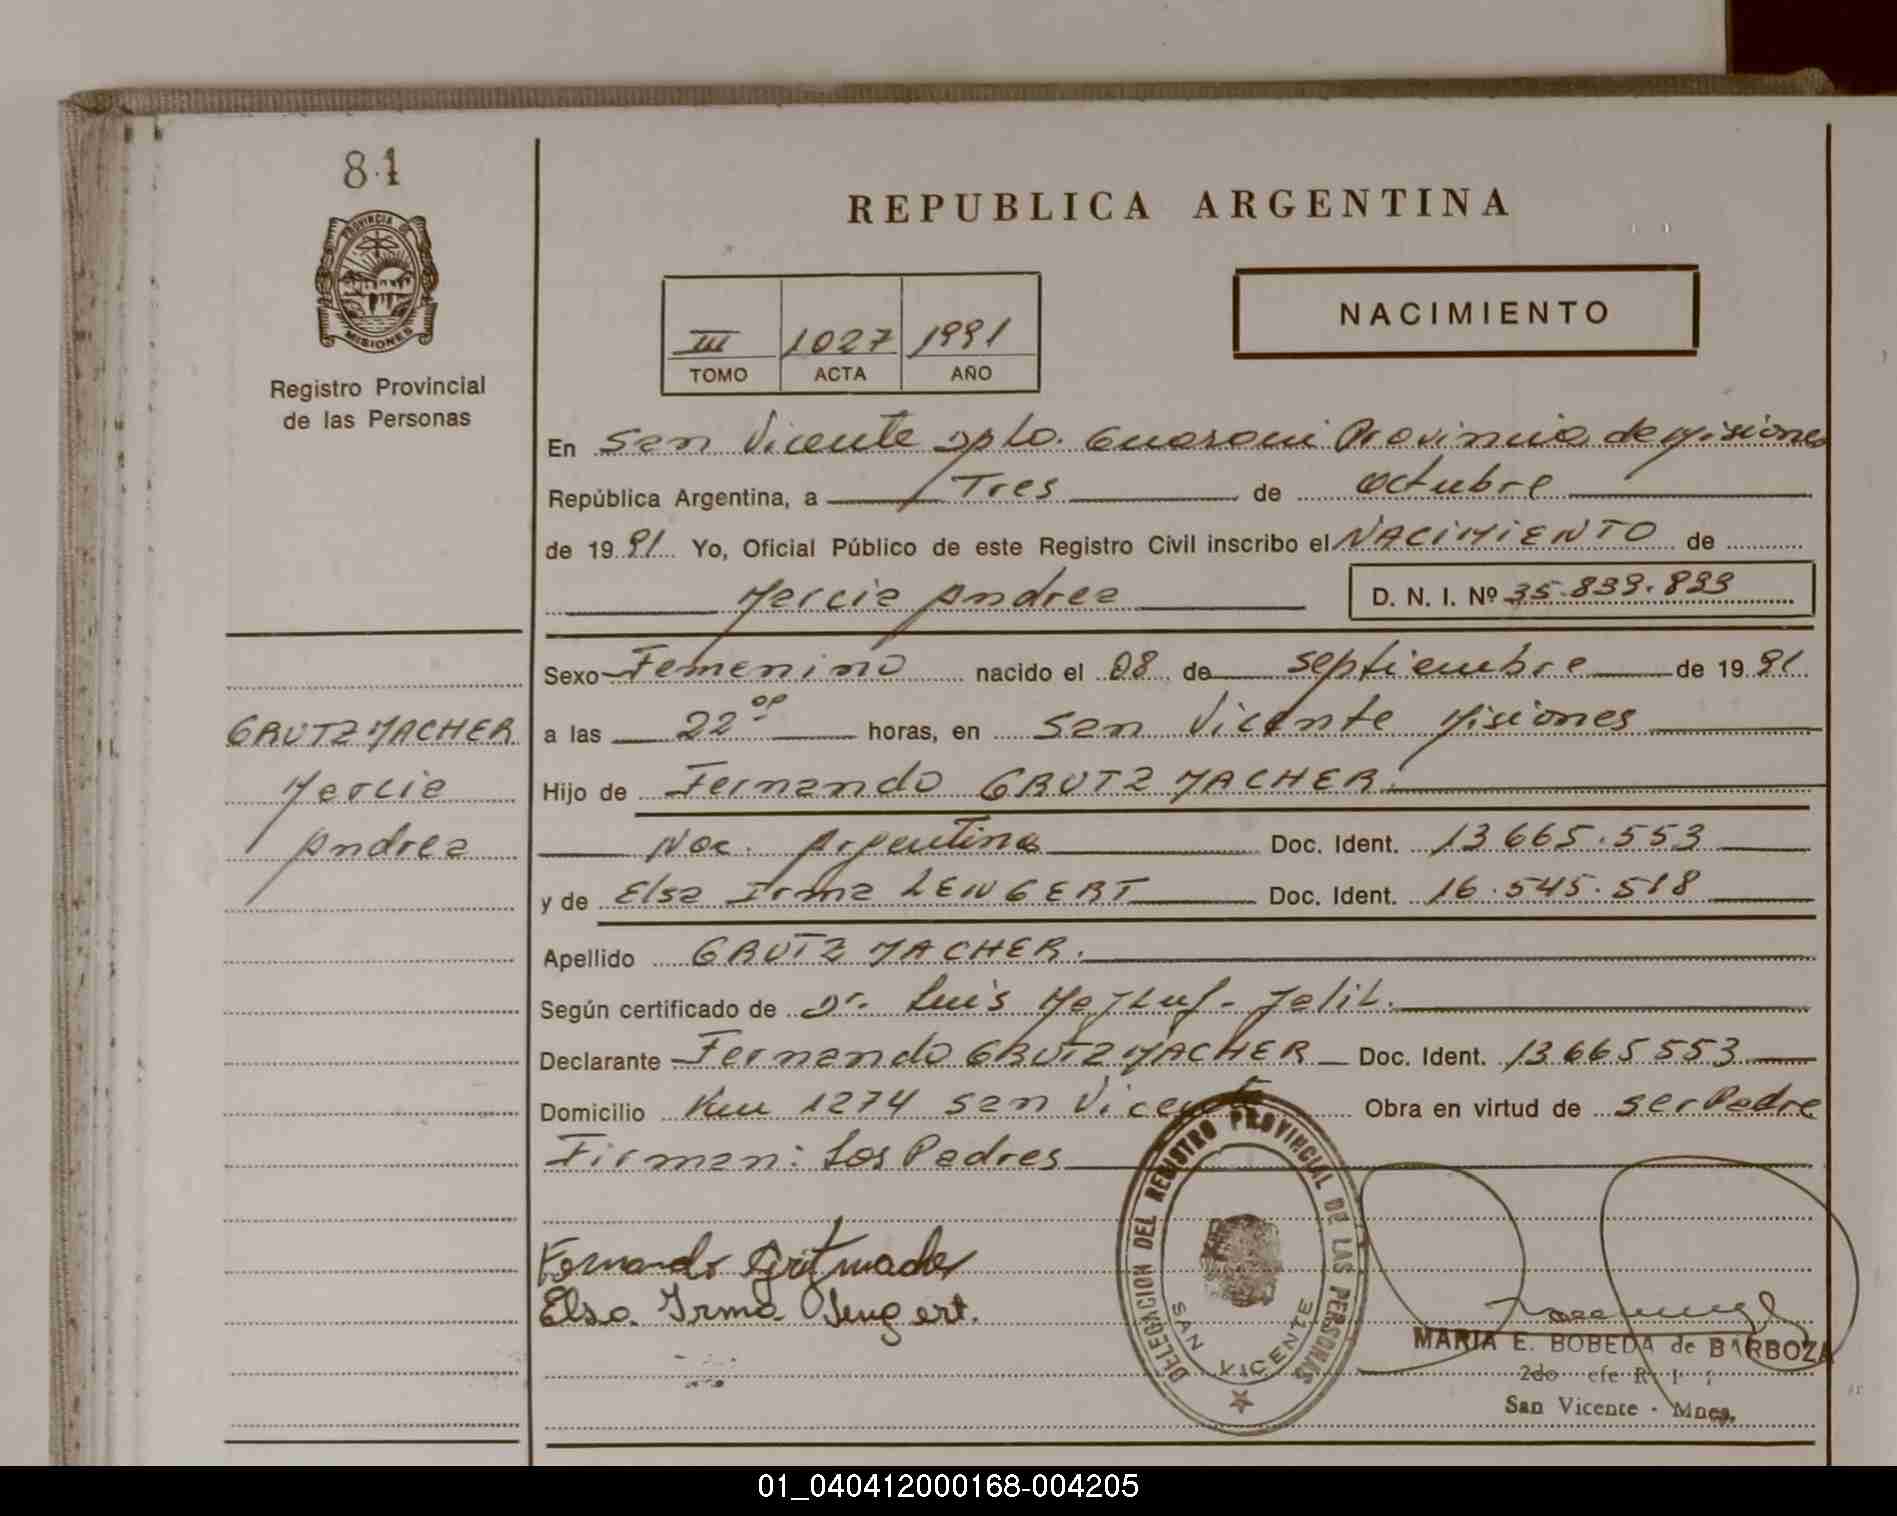 81
PROVINCIA DE
MISIONES
Registro Provincial
de las Personas
REPUBLICA ARGENTINA
III 1027 1991
TOMO ACTA AÑO
NACIMIENTO
En San Vicente Dpto. Guarani Provincia de Misiones
República Argentina, a Tres de octubre
de 1991 Yo, Oficial Público de este Registro Civil inscribo el NACIMIENTO de
Marcia Andrea D. N. I. Nº 35.839.893
Sexo Femenino nacido el 08 de septiembre de 1991
GRUTZMACHER
a las 22 horas, en San Vicente Misiones
Marcia
Hijo de Fernando GRUTZMACHER.
Andrea
Nac. Argentina Doc. Ident. 13.665.553
y de Elsa Irma LENGERT Doc. Ident. 16.545.518
Apellido GRUTZMACHER.
Según certificado de Dr. Luis Jalil.
Declarante Fernando GRUTZMACHER Doc. Ident. 13665553
Domicilio Km 1274 San Vicente Obra en virtud de ser Padre
Firman: Los Padres
Fernando Grützmacher
Elsa Irma Lengert.
DELEGACION DEL REGISTRO PROVINCIAL DE LAS PERSONAS
SAN VICENTE
MARIA E. BOBEDA de BARBOZA
2do
San Vicente - Mnes.
01_040412000168-004205